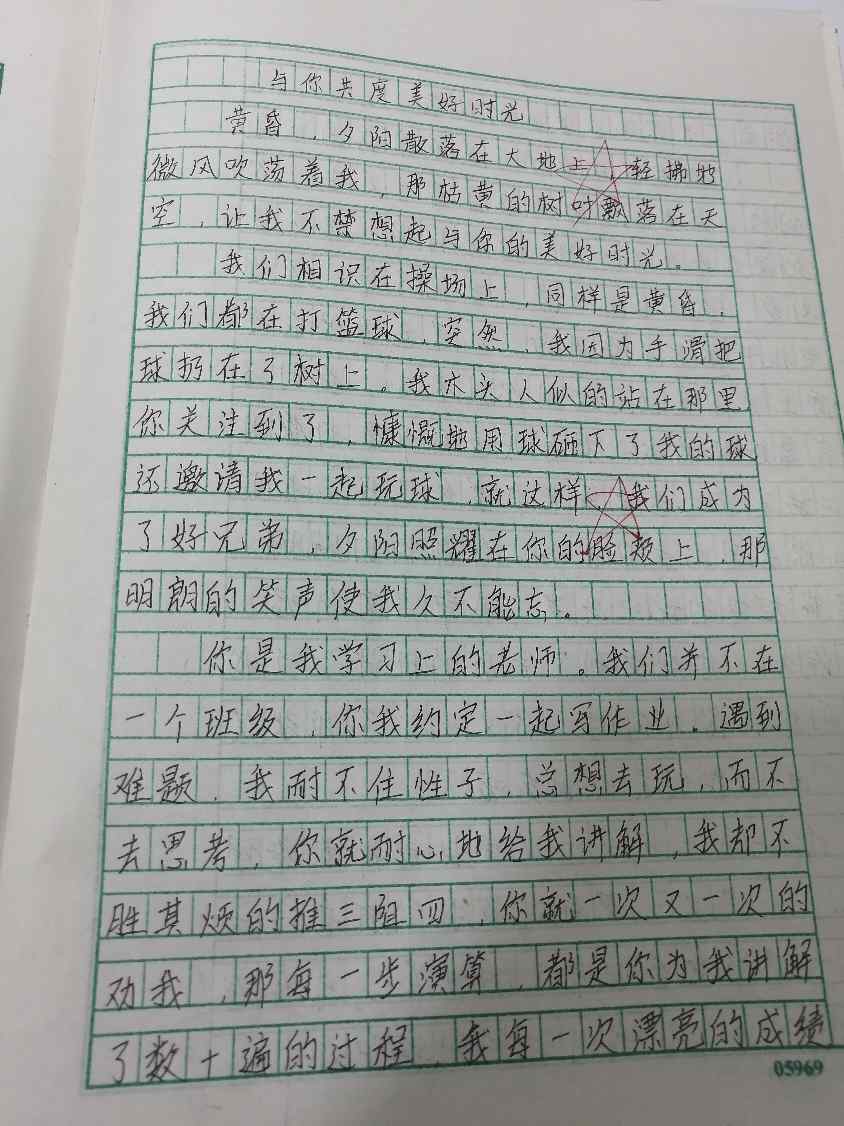 与你共度美好时光
黄昏，夕阳散落在大地上，轻拂地
微风吹荡着我，那枯黄的树叶飘落在天
空，让我不禁想起与你的美好时光。
我们相识在操场上，同样是黄昏，
我们都在打篮球，突然，我因为手滑把
球扔在了树上。我木头人似的站在那里
你关注到了，慷慨地用球砸下了我的球
还邀请我一起玩球，就这样，我们成为
了好兄弟，夕阳照耀在你的脸颊上，那
明朗的笑声使我久不能忘。
你是我学习上的老师。我们并不在
一个班级，你我约定一起写作业。遇到
难题，我耐不住性子，总想去玩，而不
去思考，你就耐心地给我讲解，我却不
胜其烦的推三阻四，你就一次又一次的
劝我，那每一步演算，都是你为我讲解
了数十遍的过程，我每一次漂亮的成绩
05969